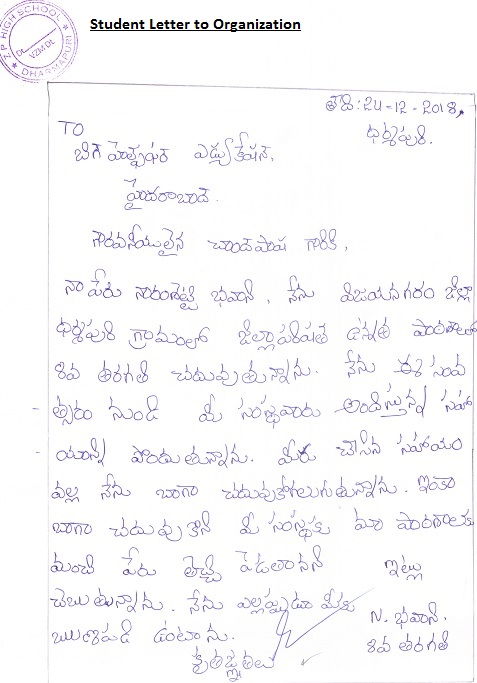 Z P HIGH SCHOOL
Dt VZM Dt
DHARMAPURI
Student Letter to Organization
తేది: 24-12-2018,
ధర్మపురి.
TO
బిగ్ హెల్ప్‌ఫర్ ఎడ్యుకేషన్,
హైదరాబాద్.
గౌరవనీయులైన చాంద్‌పాష గారికి,
నా పేరు నారంశెట్టి భవాని, నేను విజయనగరం జిల్లా
ధర్మపురి గ్రామంలో జిల్లాపరిషత్ ఉన్నత పాఠశాలలో
8వ తరగతి చదువుతున్నాను. నేను ఈ సంవ
త్సరం నుండి మీ సంస్థవారు అందిస్తున్న సహా
యాన్ని పొందుతున్నాను. మీరు చేసిన సహాయం
వల్ల నేను బాగా చదువుకోగలుగుతున్నాను. ఇంకా
బాగా చదువుకొని మీ సంస్థకు మా పాఠశాలకు
మంచి పేరు తెచ్చి పెడతానని ఇట్లు
చెబుతున్నాను. నేను ఎల్లప్పుడూ మీకు N. భవాని.
ఋణపడి ఉంటాను. 8వ తరగతి
కృతజ్ఞతలు